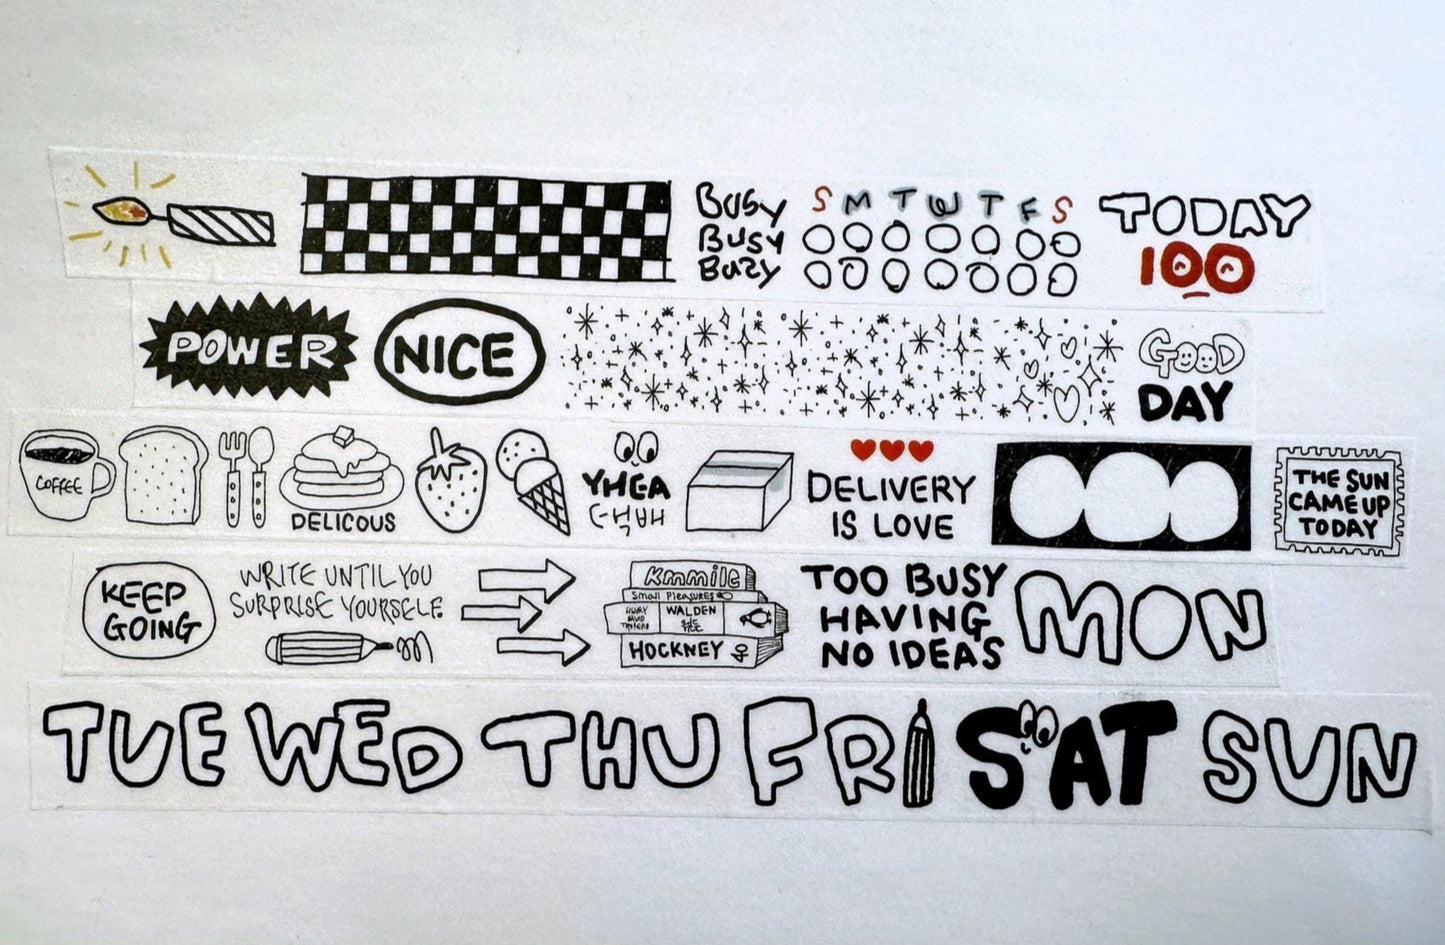 Busy
Busy
Buzy
S M T W T F S
TODAY
100
POWER
NICE
GOOD
DAY
COFFEE
DELICOUS
YHEA
DELIVERY
IS LOVE
THE SUN
CAME UP
TODAY
KEEP
GOING
WRITE UNTIL YOU
SURPRISE YOURSELF.
Kmmile
Small PLeasures
WALDEN
HOCKNEY
TOO BUSY
HAVING
NO IDEAS
MON
TUE WED THU FRI SAT SUN